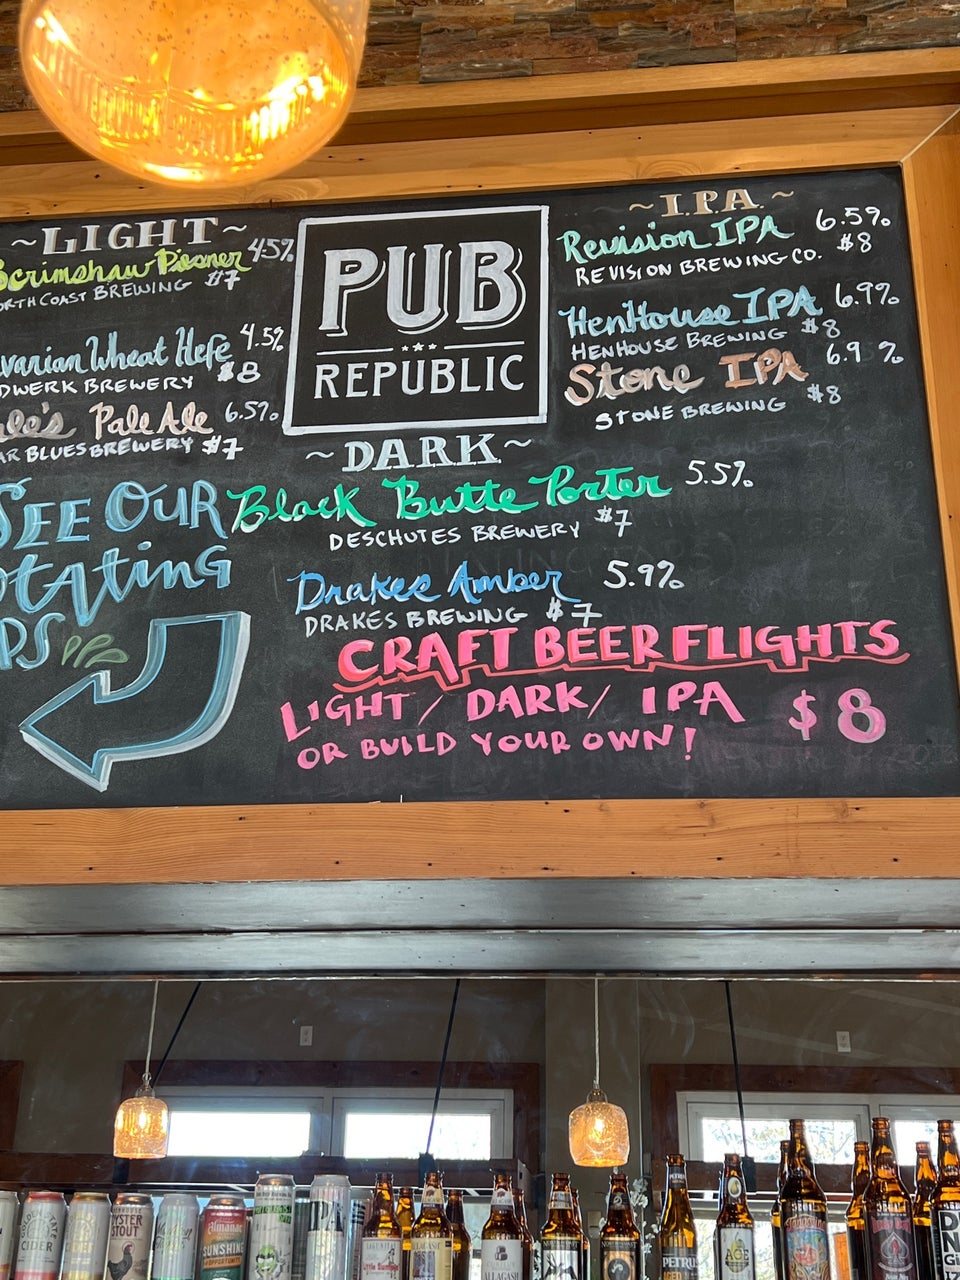 ~LIGHT~
Scrimshaw Pilsner 4.5%
NORTH COAST BREWING $7
varian Wheat Hefe 4.5%
DWERK BREWERY $8
ale's Pale Ale 6.5%
AR BLUES BREWERY $7
SEE OUR
otating
PS
PUB
REPUBLIC
~IPA~
Revision IPA 6.5%
REVISION BREWING CO. $8
HenHouse IPA 6.9%
HENHOUSE BREWING $8
Stone IPA 6.9 %
STONE BREWING $8
~DARK~
Black Butte Porter 5.5%
DESCHUTES BREWERY $7
Drakes Amber 5.9%
DRAKES BREWING $7
CRAFT BEER FLIGHTS
LIGHT / DARK / IPA $8
OR BUILD YOUR OWN!
GOLDEN STATE
CIDER
OYSTER
STOUT
Almanac
SUNSHINE
& OPPORTUNITY
IPA
ALLAGASH
PETRUS
AGED
ACE